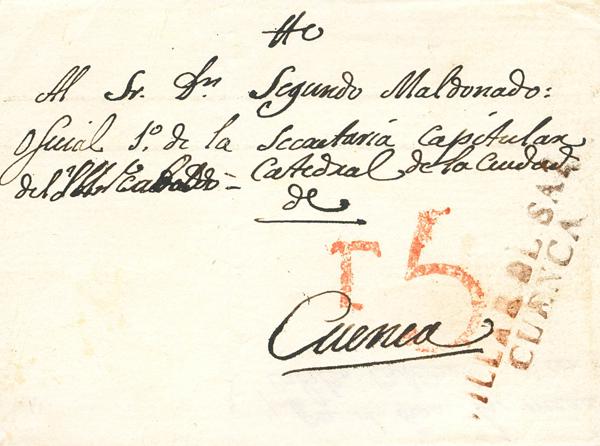 Al Sr. Dn Segundo Maldonado:
Oficial 1º de la Secretaria Capitular
del Cabildo Catedral de la Ciudad
de
Cuenca
15
CUENCA